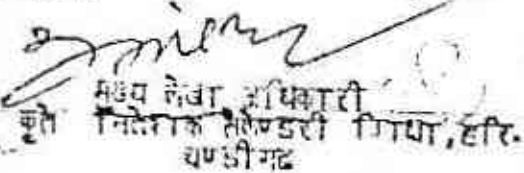 मुख्य लेखा अधिकारी
कृते निदेशक सैकेण्डरी शिक्षा, हरि.
चण्डीगढ